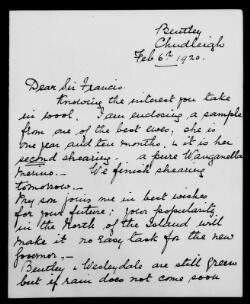 Bentley
Chudleigh
Feb 6th 1920.
Dear Sir Francis.
Knowing the interest you take
in wool. I am enclosing a sample
from one of the best ewes, she is
one year and ten months, & it is her
second shearing. — a pure Wanganella
merino. — We finish shearing
tomorrow. —
My son joins me in best wishes
for your future; your popularity
in the North of the Island will
make it no easy task for the new
Governor. —
Bentley & Wesleydale are still green
but if rain does not come soon